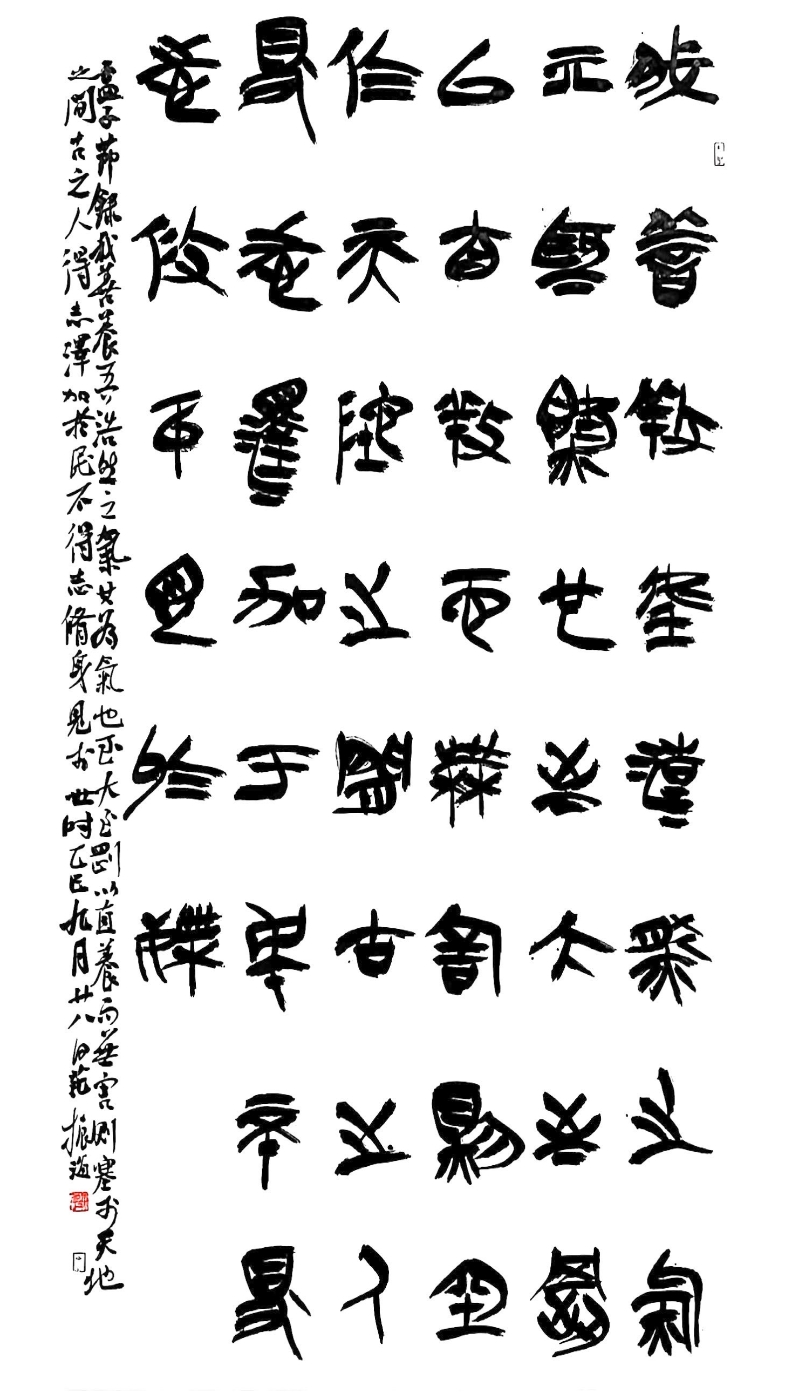 我善養吾浩然之氣
其為氣也至大至剛
以直養而無害則塞
於天地之間古之人
得志澤加于民不得
志修身見於世
孟子節錄我善養吾浩然之氣其為氣也至大至剛以直養而無害則塞於天地
之間古之人得志澤加於民不得志脩身見於世時乙巳九月廿八日